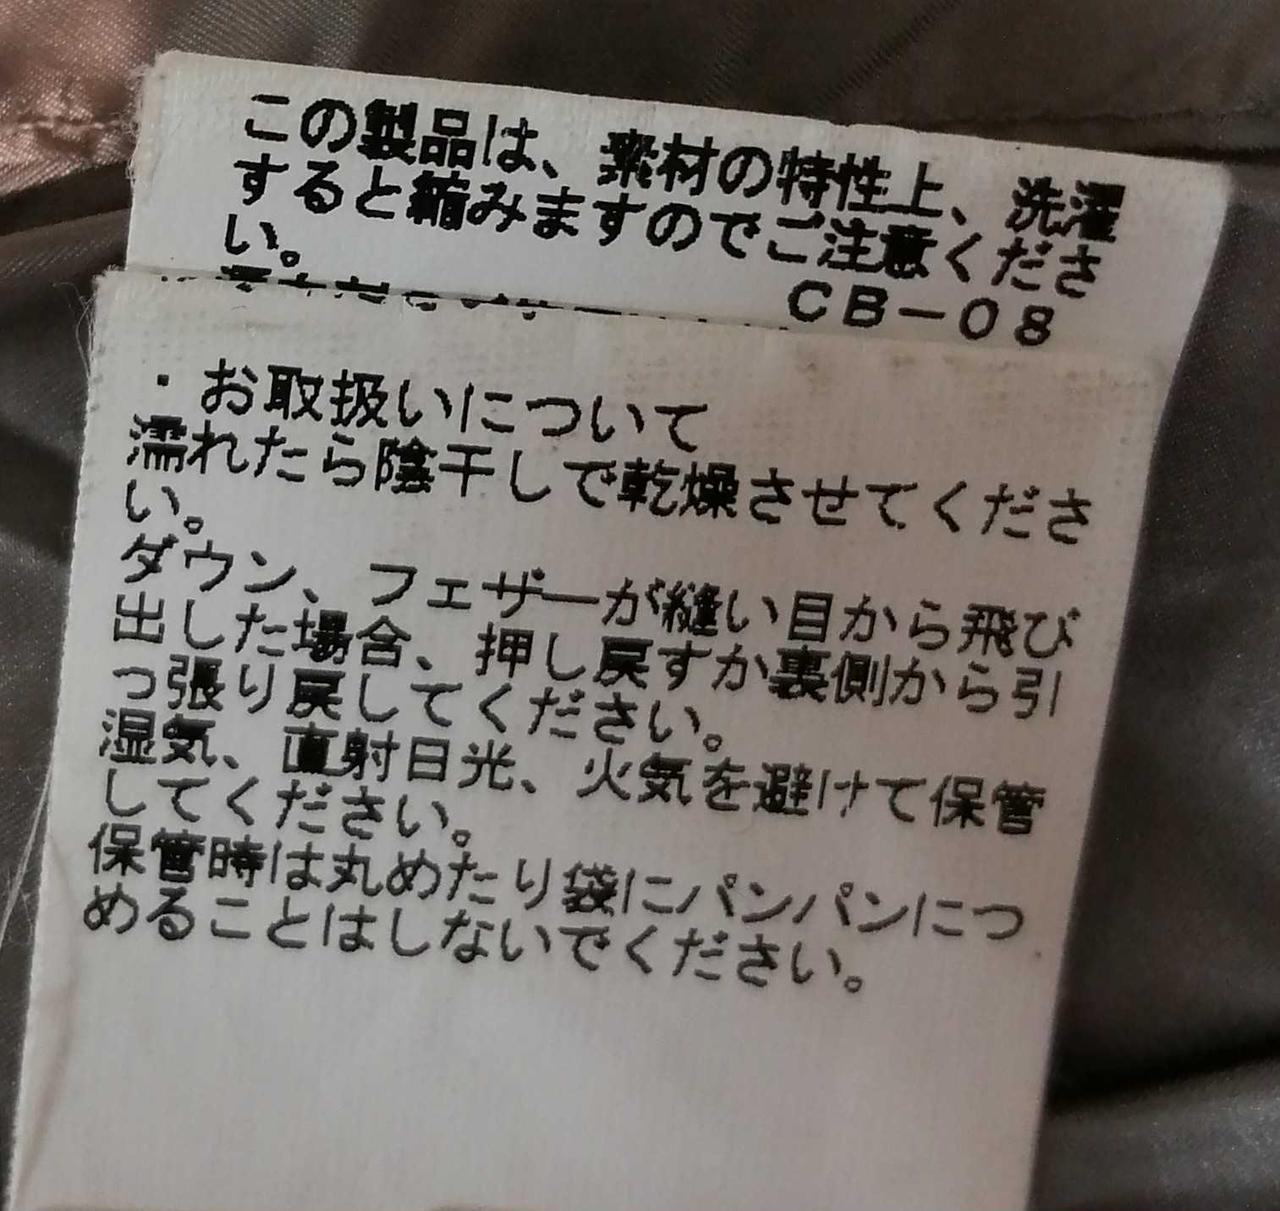 この製品は、素材の特性上、洗濯
すると縮みますのでご注意くださ
い。
CB-08
・お取扱いについて
濡れたら陰干しで乾燥させてくださ
い。
ダウン、フェザーが縫い目から飛び
出した場合、押し戻すか裏側から引
っ張り戻してください。
湿気、直射日光、火気を避けて保管
してください。
保管時は丸めたり袋にパンパンにつ
めることはしないでください。